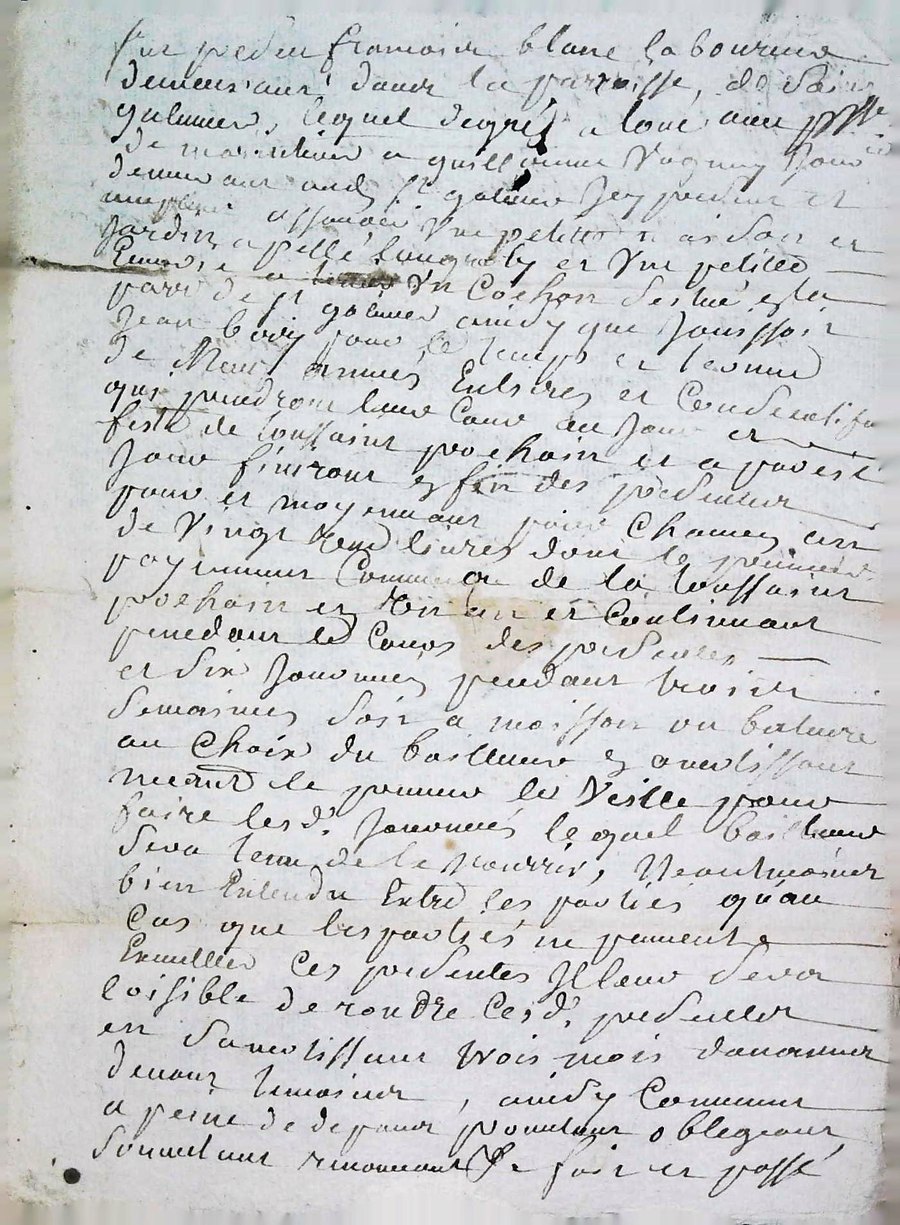 fut présent françois blanc laboureur
demeurant dans la parroisse, de Sain
galmier, lequel degré a loué avec
de maintenir a guillaume
demeurant aud St galmier Icy present et
acceptant assavoir Une petitte maison et
Jardin, appellé et Une petitte
Ecurie a tenir Un Cochon Scitué en la
parr de St galmier ainsy que Jouissoit
Jean pour le temps et terme
de Neuf années Entieres et Consecutifs
qui prendront leurs Cours au Jour et
feste de toussaint prochain et a pareil
Jour finiront & fin des présentes
pour et moyenant pour Chacun an
de Vingt livres dont le premier
payement Commencera de la toussaint
prochain en Un an et Continuant
pendant le Cours des présentes
et Six Journées pendant trois
Semaines Soit a moisson ou batture
au Choix du bailleur & avertissant
le preneur la Veille pour
faire lesd. Journées lequel bailleur
Sera tenu de le Nourrir, Neantmoins
bien Entendu Entre les parties qu'au
Cas que les parties ne puissent
Executter Ces présentes Il leur Sera
loisible de rondre Cesd. présentes
en Savertissant trois mois d'avance
devant temoins, ainsy Convenu
a peine de depens promettant obligeant
Soumettant renoncant & fait et passé